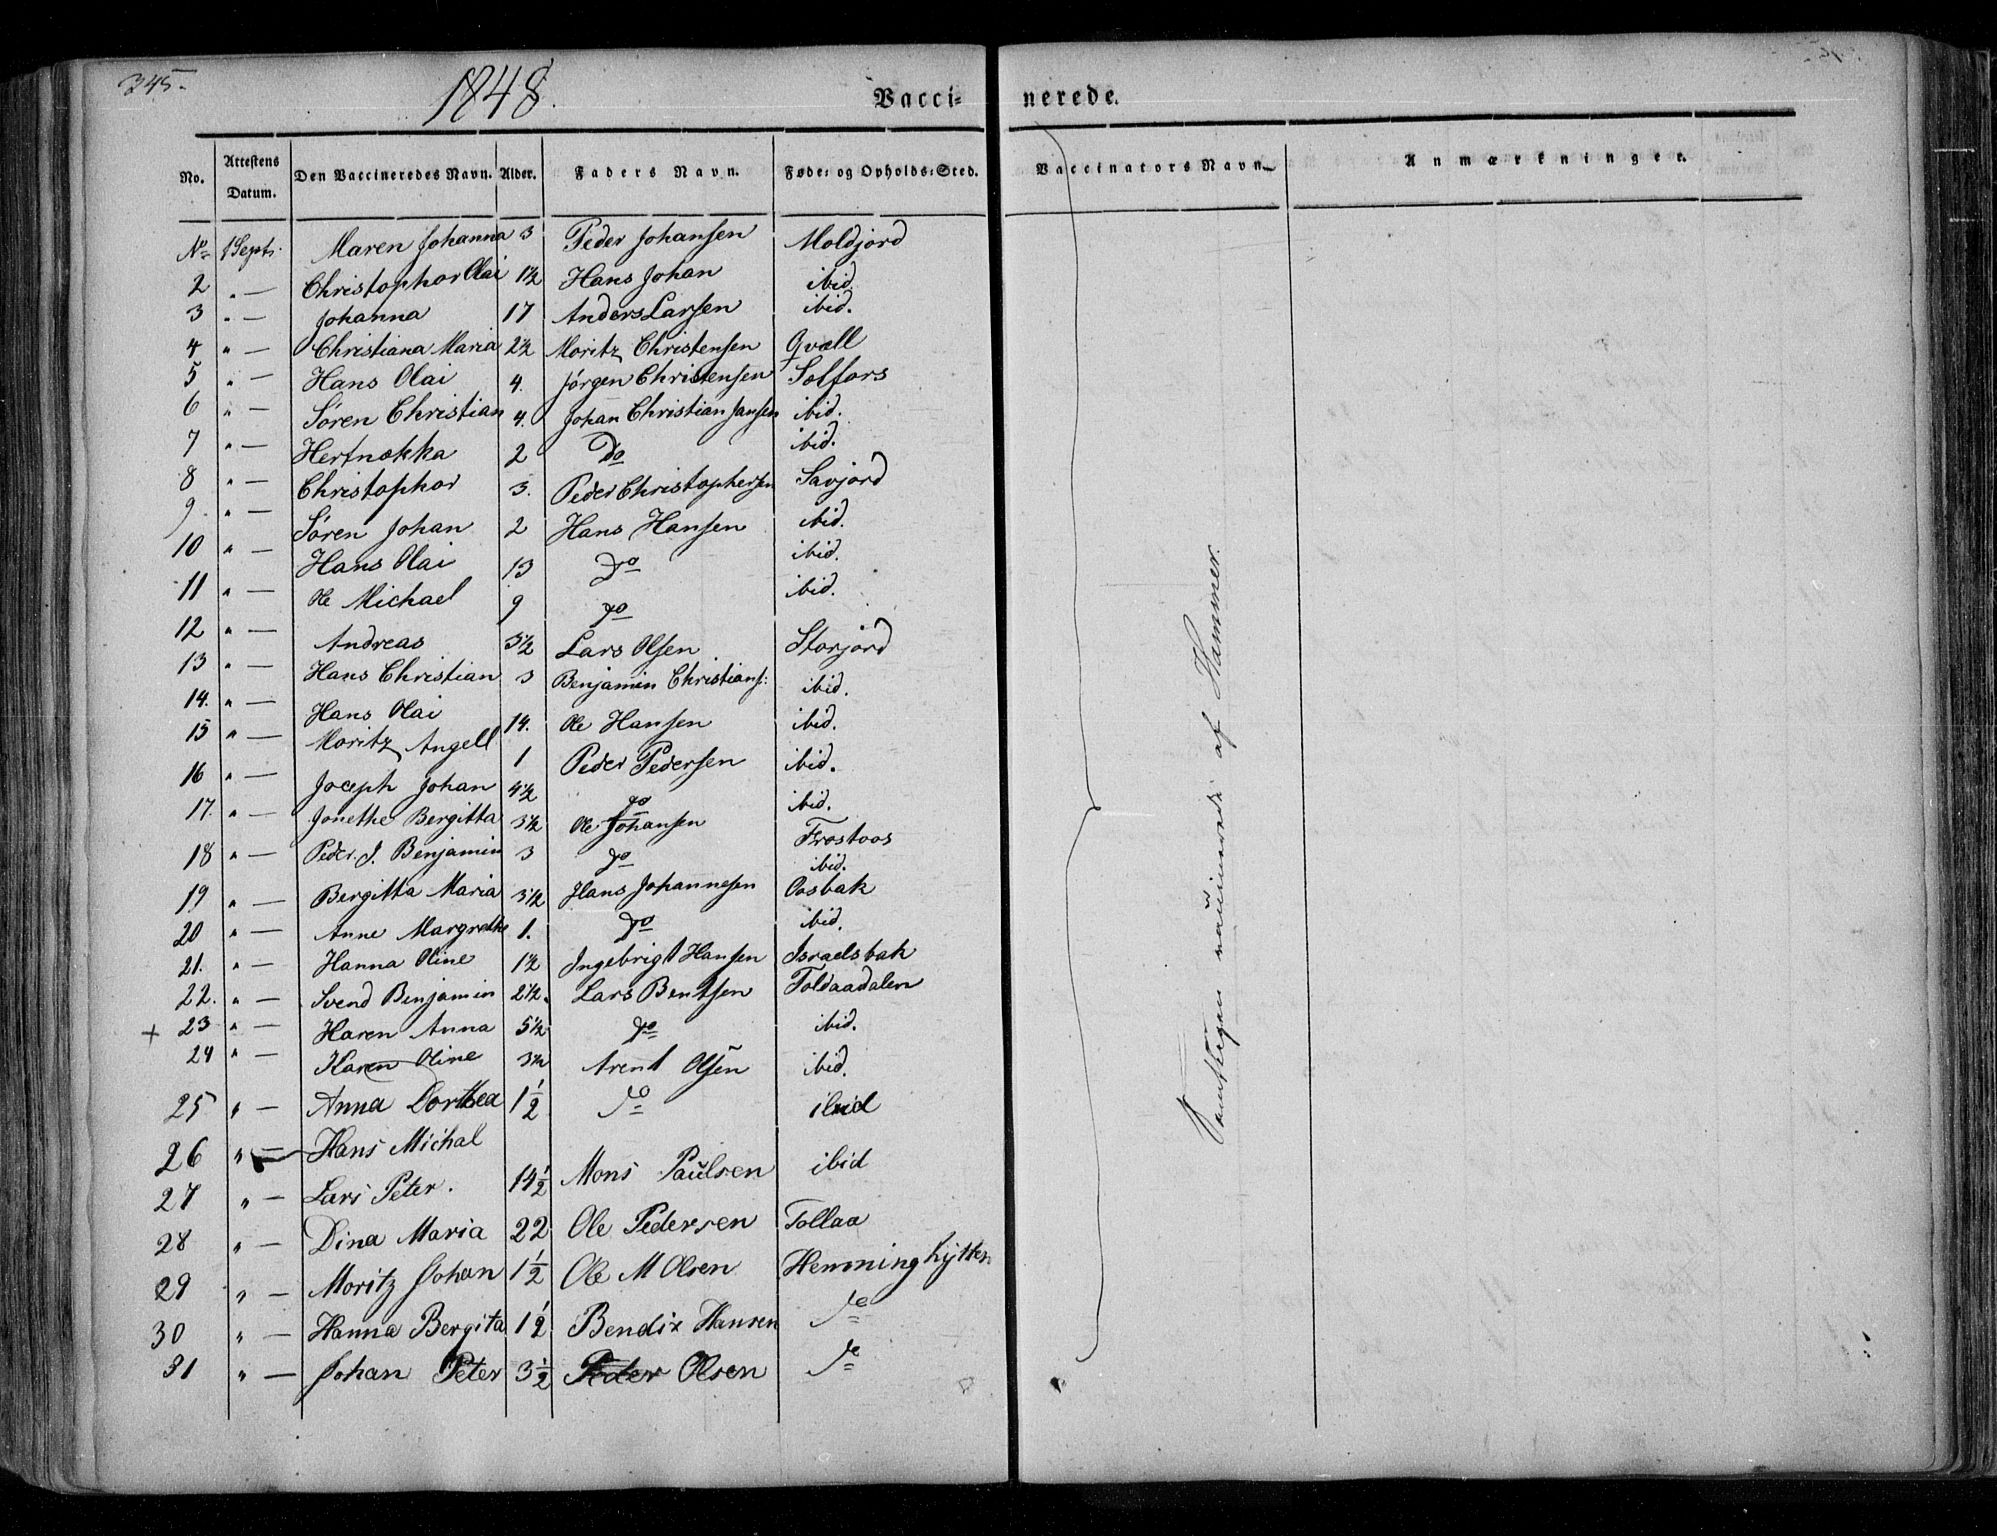 345.
1848.
Vacci- nerede.
No. Attestens Datum. Den Vaccineredes Navn. Alder. Faders Navn. Føde- og Opholds-Sted. Vaccinators Navn. Anmærkninger.
No 1 Sept. Maren Johanna 3 Peder Johansen Moldjord
2 " — Christophor Olai 1½ Hans Johan ibid.
3 " — Johanna 17 Anders Larsen ibid.
4 " — Christiana Maria 2½ Moritz Christensen Qvæll
5 " — Hans Olai 4. Jørgen Christensen Solfors
6 " — Søren Christian 4. Johan Christian Jansen ibid.
7 " — Hertnækka 2 Do ibid.
8 " — Christophor 3. Peder Christophersen Savjord
9. " — Søren Johan 2 Hans Hansen ibid.
10 " — Hans Olai 13 Do ibid.
11 " — Ole Michael 9 Do ibid.
12 " — Andreas 3½ Lars Olsen Storjord
13 " — Hans Christian 3 Benjamin Christians: ibid.
14. " — Hans Olai 14. Ole Hansen ibid.
15 " — Moritz Angell 1 Peder Pedersen ibid.
16 " — Joceph Johan 4½ Do ibid.
17. " — Jonethe Bergitta 3½ Ole Johansen Frostoos
18 " — Peder J. Benjamin 3 Do ibid.
19 " — Bergitta Maria 3½ Hans Johannesen Oosbak
20 " — Anne Margrethe 1. Do ibid.
21. " — Hanna Oline 1½ Ingebrigt Hansen Israelsbak
22. " — Svend Benjamin 2½. Lars Bentsen Toldaadalen
+ 23 " — Haren Anna 5½ Do ibid.
24 " — Karen Oline 3½ Arent Olsen ibid.
25 " — Anna Dorthea 1½ Do ibid
26 " — Hans Michal
27 " — Lars Peter. 14½ Mons Paulsen ibid
28 " — Dina Maria 22 Ole Pedersen Tollaa
29 " — Moritz Johan 1½ Ole M Olsen Hemminghytten
30 " — Hanna Bergita 1½ Bendix Hansen do
31 " — Johan Peter 3½ Peder Olsen do
Samtlige vaccinerede af Hammer.